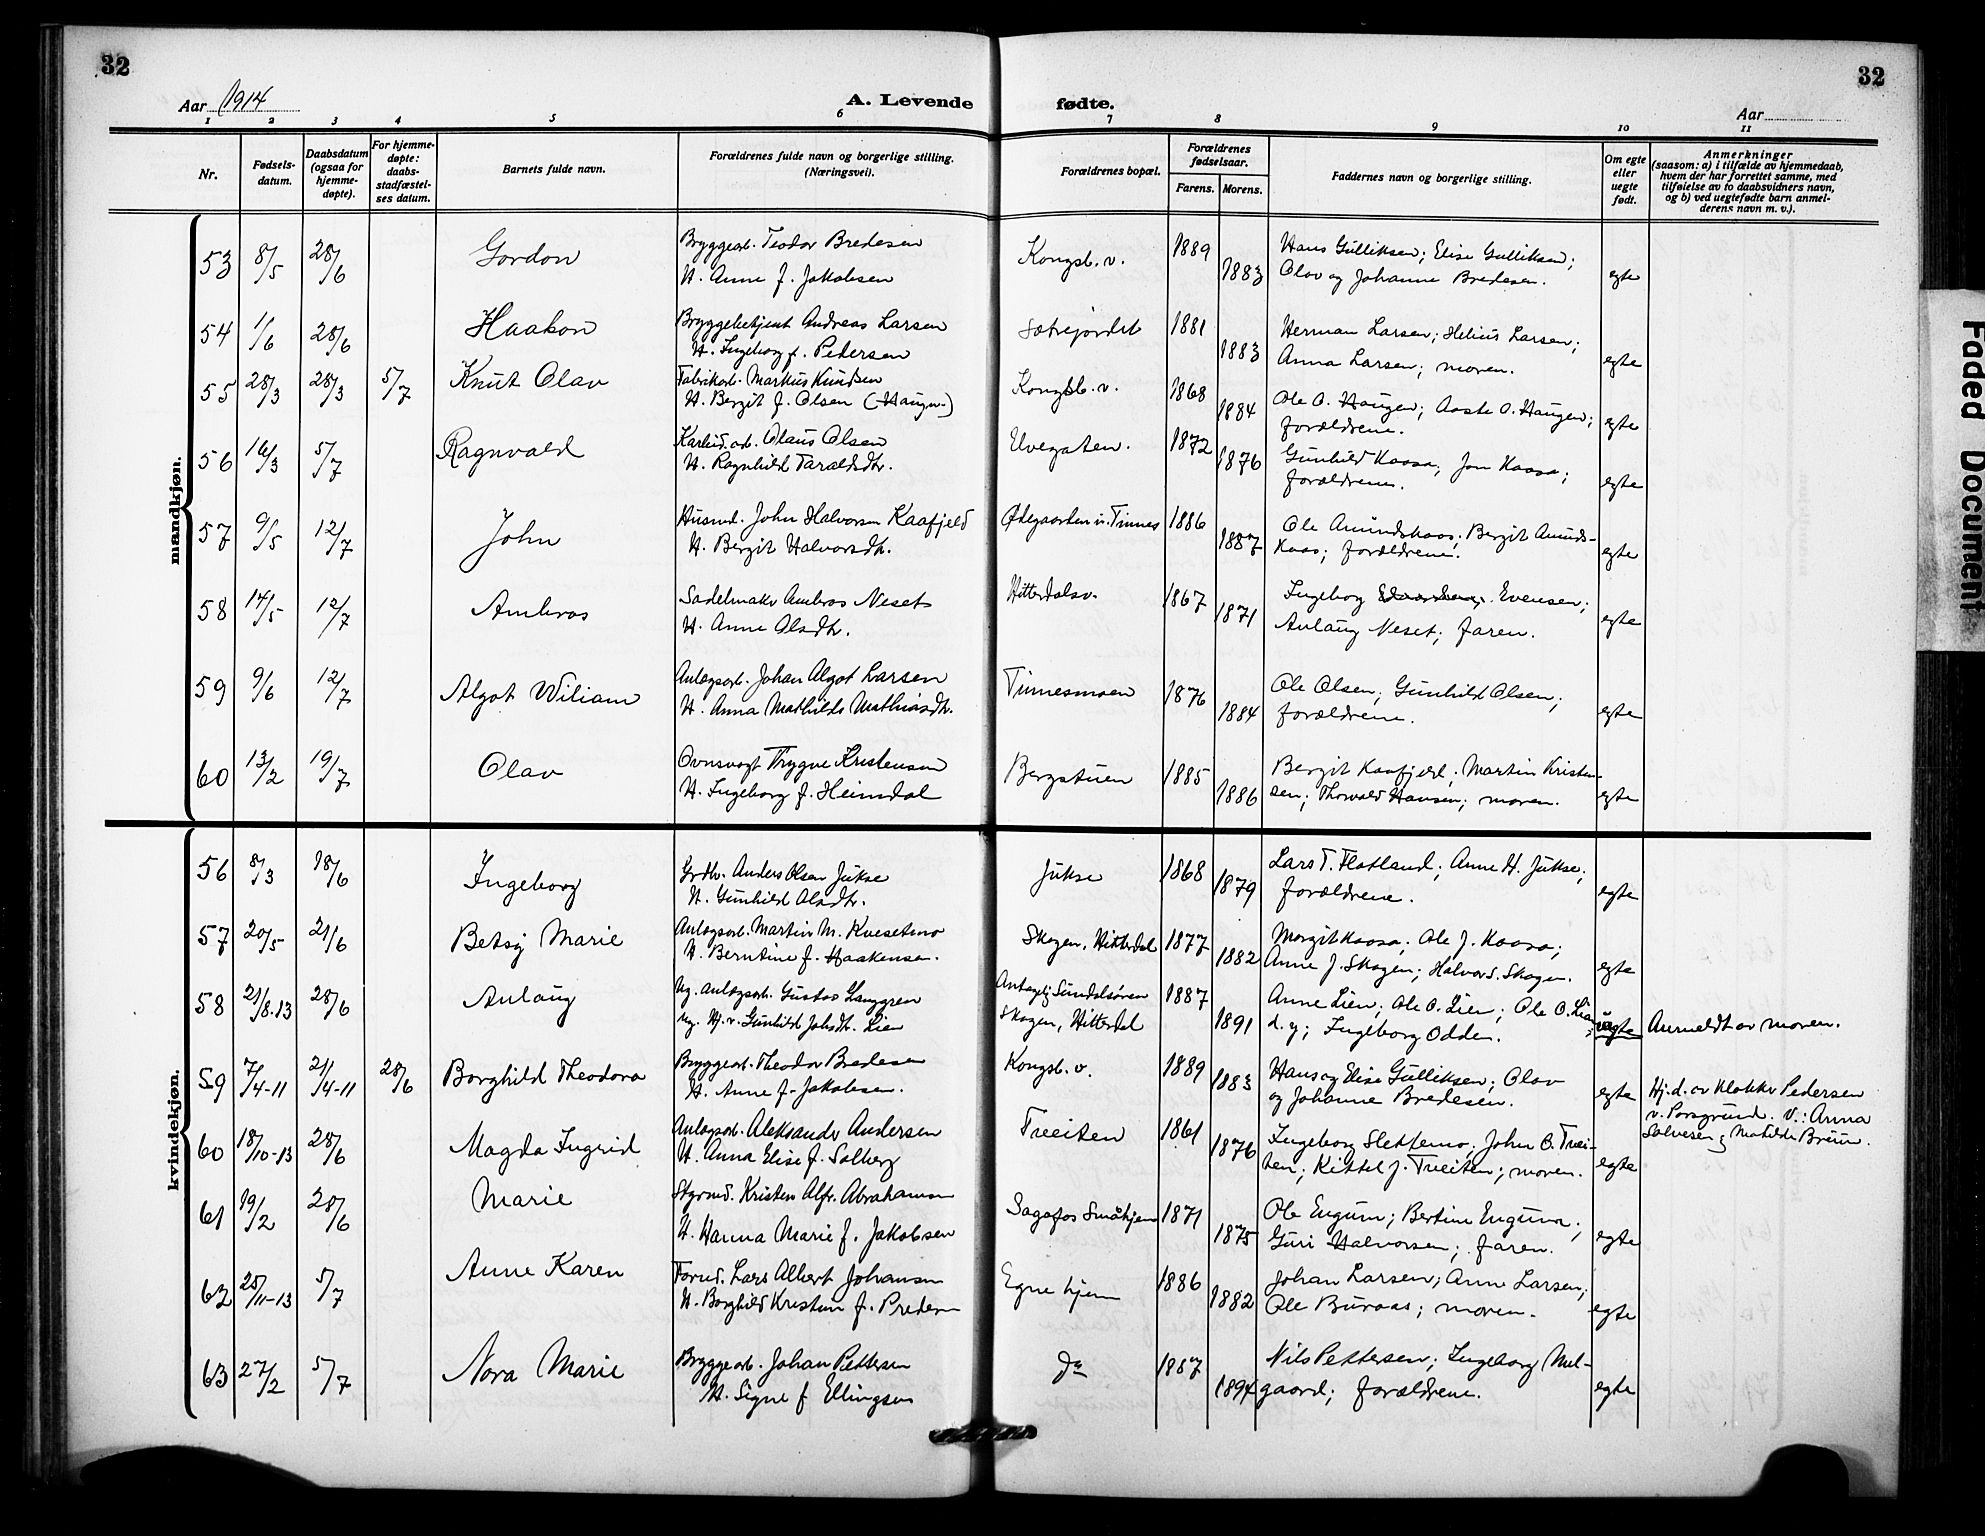 32
32
Aar 1914
A. Levende
fødte.
Aar
1 2 3 4 5 6 7 8 9 10 11
Nr.
Fødsels-
datum.
Daabsdatum
(ogsaa for
hjemme-
døpte).
For hjemme-
døpte:
daabs-
stadfæstel-
ses datum.
Barnets fulde navn.
Forældrenes fulde navn og borgerlige stilling.
(Næringsvei).
Forældrenes bopæl.
Forældrenes
fødselsaar.
Farens. Morens.
Faddernes navn og borgerlige stilling.
Om egte
eller
uegte
født.
Anmerkninger
(saasom: a) i tilfælde av hjemmedaab,
hvem der har forrettet samme, med
tilføielse av to daabsvidners navn,
og b) ved uegtefødte barn anmel-
derens navn m. v.).
mandkjøn.
53 8/5 28/6 Gordon Bryggearb. Teodor Bredesen Kongsb. v. 1889 Hans Gulliksen; Elise Gulliksen;
H. Anne f. Jakobsen 1883 Olav og Johanne Bredesen. egte
54 1/6 28/6 Haakon Bryggebetjent Andreas Larsen Sætrejordet 1881 Herman Larsen; Helius Larsen;
H. Ingeborg f. Pedersen 1883 Anna Larsen; moren. egte
55 28/3 28/3 5/7 Knut Olav Fabrikarb. Markus Knudsen Kongsb. v. 1868 Ole O. Haugen; Aaste O. Haugen;
H. Bergit f. Olsen (Haugen) 1884 forældrene. egte
56 16/3 5/7 Ragnvald Karbid.arb. Olaus Olsen Elvegaten. 1872 Gunhild Kaasa; Jon Kaasa;
H. Ragnhild Taraldsdtr. 1876 forældrene. egte
57 9/5 12/7 John Husmd. John Halvorsen Kaafjeld Ødegaarden u. Tinnes 1886 Ole Amundskaas; Bergit Amunds-
H. Bergit Halvorsdtr. 1887 kaas; forældrene. egte
58 14/5 12/7 Ambros Sadelmaker Ambros Neset Hitterdalsv. 1867 Ingeborg Evensen;
H. Anne Olsdtr. 1871 Anlaug Neset; faren. egte
59 9/6 12/7 Algot Wiliam Anlægsarb. Johan Algot Larsen Tinnesmoen 1876 Ole Olsen; Gunhild Olsen;
H. Anna Mathilde Mathiasdtr. 1884 forældrene. egte
60 13/2 19/7 Olav Ovnsvogt Trygve Kristensen Bergstuen 1885 Bergit Kaafjeld; Martin Kristen-
H. Ingeborg f. Heimdal 1886 sen; Thorvald Hansen; moren. egte
kvindekjøn.
56 8/3 18/6 Ingeborg Grdbr. Anders Olsen Jukse Jukse 1868 Lars T. Flatland; Anne H. Jukse;
H. Gunhild Olsdtr. 1879 forældrene. egte
57 20/5 21/6 Betsy Marie Anlægsarb. Martin M. Kvesetmo Skogen, Hitterdal 1877 Margit Kaasa; Ole J. Kaasa;
H. Berntine f. Haakensen. 1882 Anne J. Skogen; Halvor S. Skogen. egte
58 21/8-13 28/6 Anlaug Ug. anlægsarb. Gustav Langgren Antagelig Sundalsøren 1887 Anne Lien; Ole O. Lien; Ole O. Lien
ug. Hj. v. Gunhild Johsdtr. Lien Skogen, Hitterdal 1891 d. y.; Ingeborg Odden. uegte Anmeldt av moren.
59 7/4-11 21/4-11 28/6 Borghild Theodora Bryggearb. Theodor Bredesen Kongsb. v. 1889 Hans og Elise Gulliksen; Olav
H. Anne f. Jakobsen. 1883 og Johanne Bredesen. egte Hj. d. av klokker Pedersen
v. Porsgrund. V.: Anna
Salvesen og Matilde Bruun.
60 18/10-13 28/6 Magda Ingrid Anlægsarb. Aleksander Andersen Treeiten 1861 Ingeborg Slettemo; John O. Treei-
H. Anna Elise f. Solberg 1876 ten; Kittel J. Treeiten; moren. egte
61 19/2 28/6 Marie Styrmd. Kristen Alfr. Abrahamsen Sagafos Småhjem 1871 Ole Engum; Bertine Engum;
H. Hanna Marie f. Jakobsen 1875 Guri Halvorsen; faren. egte
62 25/11-13 5/7 Anne Karen Formd. Lars Albert Johansen Egne hjem 1886 Johan Larsen; Anne Larsen;
H. Borghild Kristine f. 1882 Ole Buraas; moren. egte
63 27/2 5/7 Nora Marie Bryggearb. Johan Pettersen do 1887 Nils Pettersen; Ingeborg Mel-
H. Signe f Ellingsen 1894 gaard; forældrene. egte
Faded Document